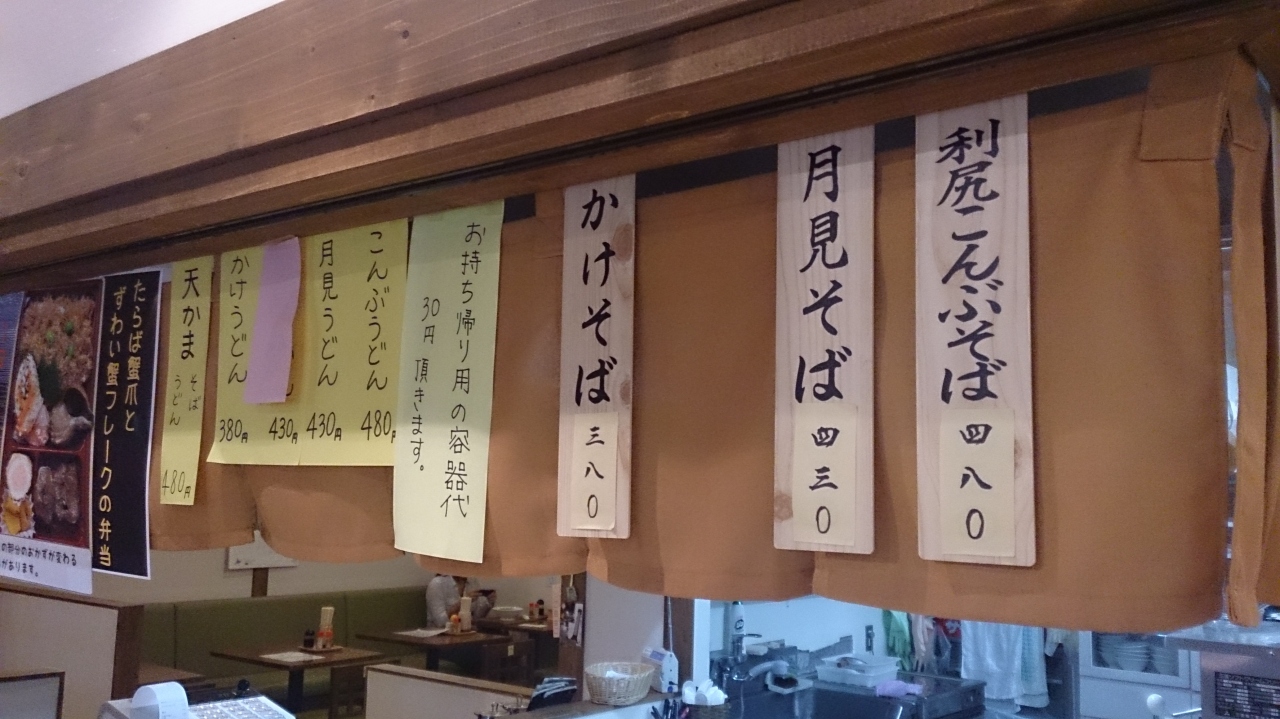 利尻こんぶそば
四八〇
月見そば
四三〇
かけそば
三八〇
お持ち帰り用の容器代
30円 頂きます。
こんぶうどん
480円
月見うどん
430円
430円
かけうどん
380円
天かま
そば
うどん
480円
たらば蟹爪と
ずわい蟹フレークの弁当
の部分のおかずが変わる
があります。